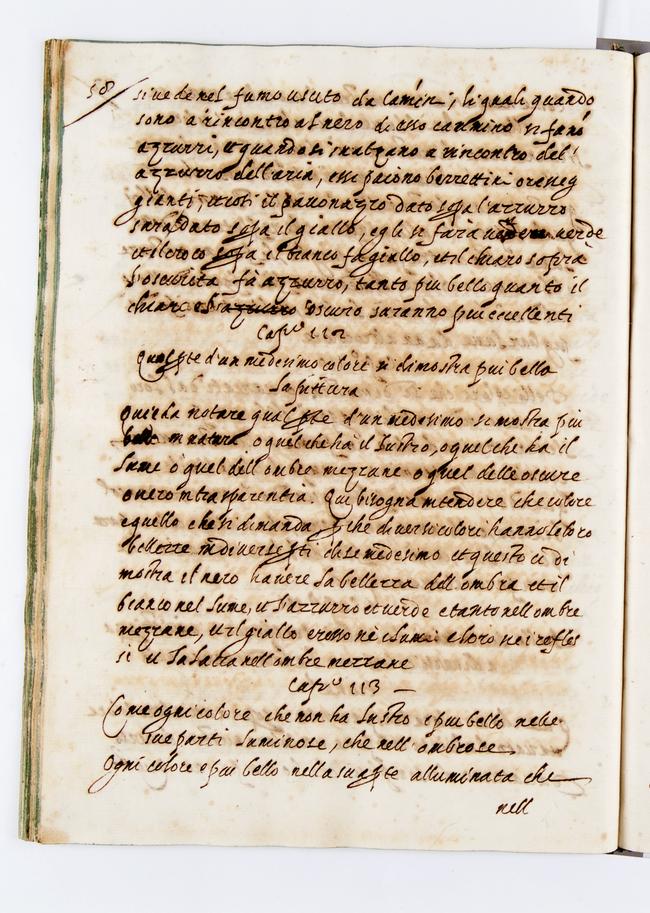 58
si vede nel fumo uscito da camin, li quali quando
sono a rincontro al nero di esso cammino si fano
azzurri, et quando si inalzano a rincontro del
azzurro dell'aria, essi paiono berrettini o rosseg
gianti, et cosi il pavonazzo dato sopa l'azzurro
sara dato sopa il giallo, egli si farà verde
et il croco sopa il bianco fa giallo, et il chiaro sopra
l'oscurita fà azzurro, tanto piu bello quanto il
chiaro et azzurro oscuro saranno piu eccellenti
Capo 112
Qual pte d'un medesimo colore si dimostra piu bella
la pittura
Qui è da notare qual pte d'un medesimo si mostra piu
bella in natura o quel che hà il lustro, o quel che ha il
lume o quel dell ombre mezzane o quel delle oscure
o nero in trasparentia. Qui bisogna intendere che colore
e quello che si dimanda p che diversi colori hanno le loro
bellezze in diverse pti di se medesimo et questo ci di
mostra il nero havere la bellezza dell ombra et il
bianco nel lume, et l'azzurro et verde e tanto nell ombre
mezzane, et il giallo e rosso nè i lumi e l'oro ne i refles
si et la lacca nell'ombre mezzane
Capo 113
Come ogni colore che non ha lustro e piu bello nelle
sue parti luminose, che nell'ombrose
Ogni colore e piu bello nella sua pte alluminata che
nell